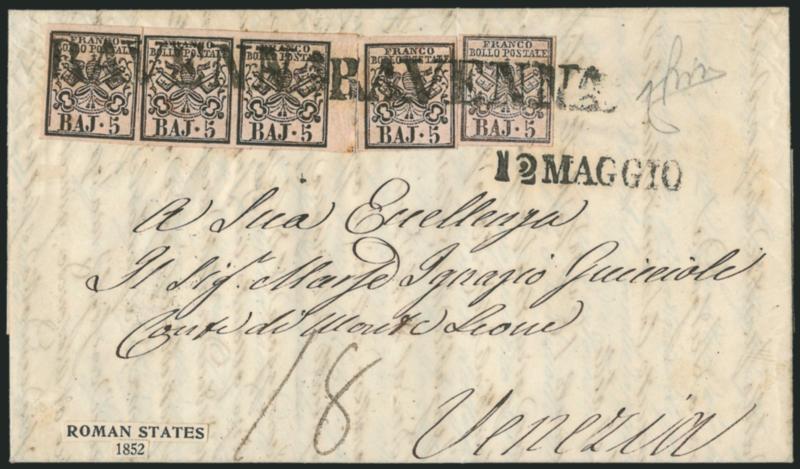 FRANCO
BOLLO POSTALE
BAJ·5
FRANCO
BOLLO POSTALE
BAJ·5
FRANCO
BOLLO POSTALE
BAJ·5
FRANCO
BOLLO POSTALE
BAJ·5
FRANCO
BOLLO POSTALE
BAJ·5
RAVENNA RAVENNA
12 MAGGIO
A Sua Eccellenza
Il Sigr. Ignazio Guiccioli
Conte di Monte Leone
18
Venezia
ROMAN STATES
1852